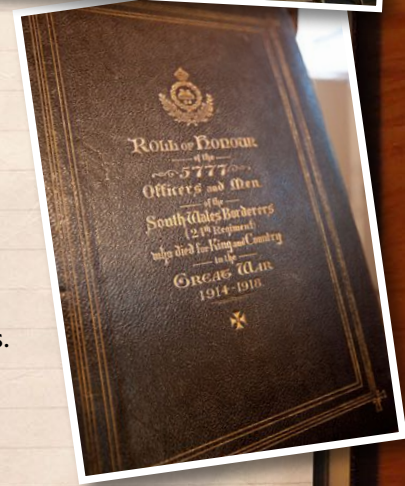 ROLL OF HONOUR
of the
5777
Officers and Men
of the
South Wales Borderers
(24th Regiment)
who died for King and Country
in the
GREAT WAR
1914-1918
s.